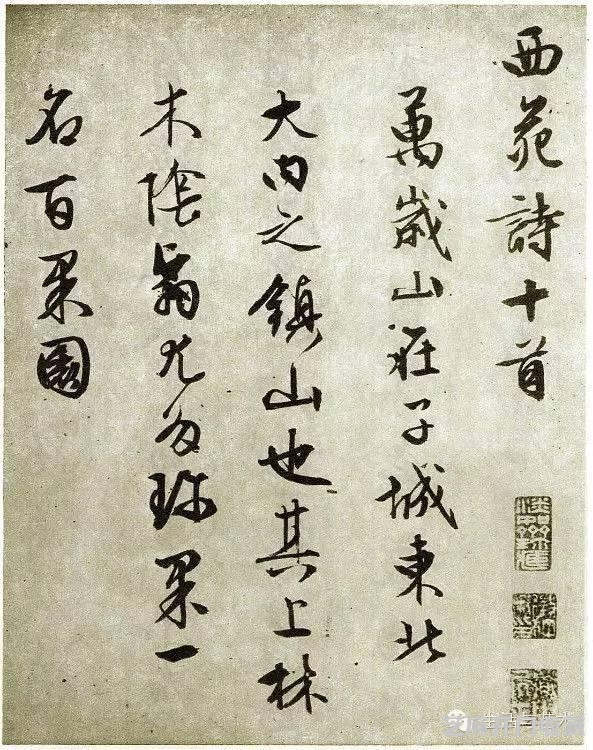 西苑詩十首
萬歲山在子城東北
大內之鎮山也其上林
木陰翳尤多珎果一
名百果園
生活与艺术